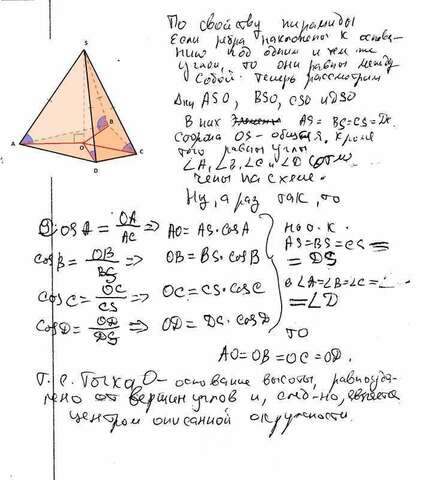 По свойству пирамиды
Если ребра наклонены к основа-
нию под одним и тем же
углом, то они равны между
собой. Теперь рассмотрим
ASO, BSO, CSO и DSO
В них AS = BS = CS = DS.
Сторона OS - общая, кроме
того равны углы
∠A, ∠B, ∠C и ∠D отме
чены на схеме.
Ну, а раз так, то
S
A
B
O
D
C
cos A = OA/AC => AO = AS·cosA
cosB = OB/BS => OB = BS·cosB
cosC = OC/CS => OC = CS·cosC
cosD = OD/DS => OD = DS·cosD
но т.к.
AS=BS=CS=
=DS
а ∠A=∠B=∠C=
=∠D
то
AO=OB=OC=OD.
Т.е. Точка O - основание высоты, равноуда-
лено от вершин углов и, след-но, является
центром описанной окружности.